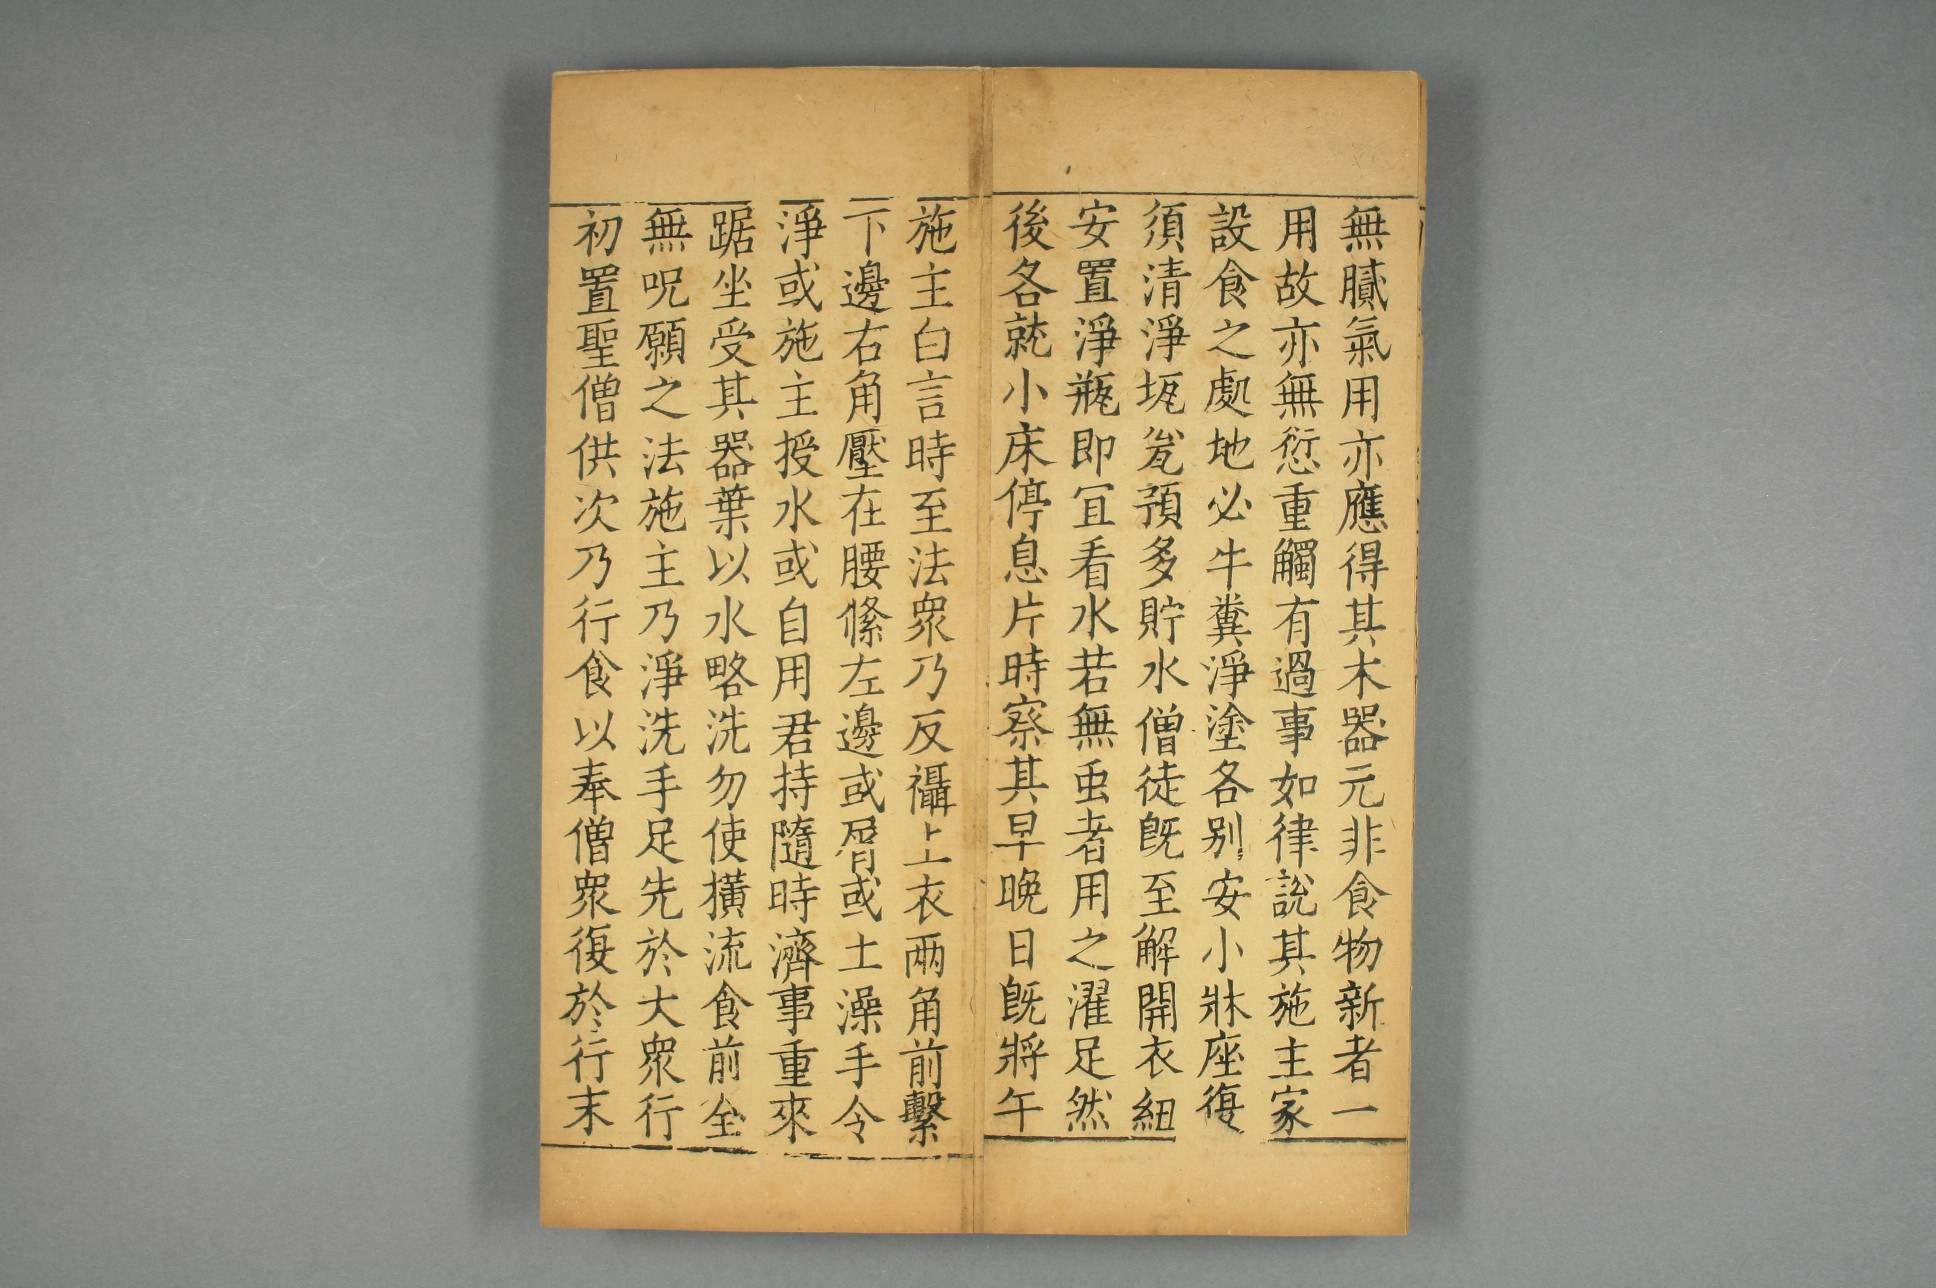 無膩氣用亦應得其木器元非食物新者一
用故亦無愆重觸有過事如律説其施主家
設食之處地必牛糞淨塗各别安小牀座復
須清淨㼚瓮預多貯水僧徒旣至解開衣紐
安置淨瓶即冝看水若無虫者用之濯足然
後各就小床停息片時察其早晚日旣將午
施主白言時至法衆乃反襵上衣兩角前繫
下邊右角壓在腰絛左邊或屑或土澡手令
淨或施主授水或自用君持隨時濟事重來
踞坐受其器葉以水略洗勿使橫流食前全
無呪願之法施主乃淨洗手足先於大衆行
初置聖僧供次乃行食以奉僧衆復於行末